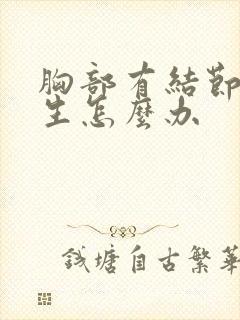 胸部有結節
生怎麼办
錢塘自古繁華